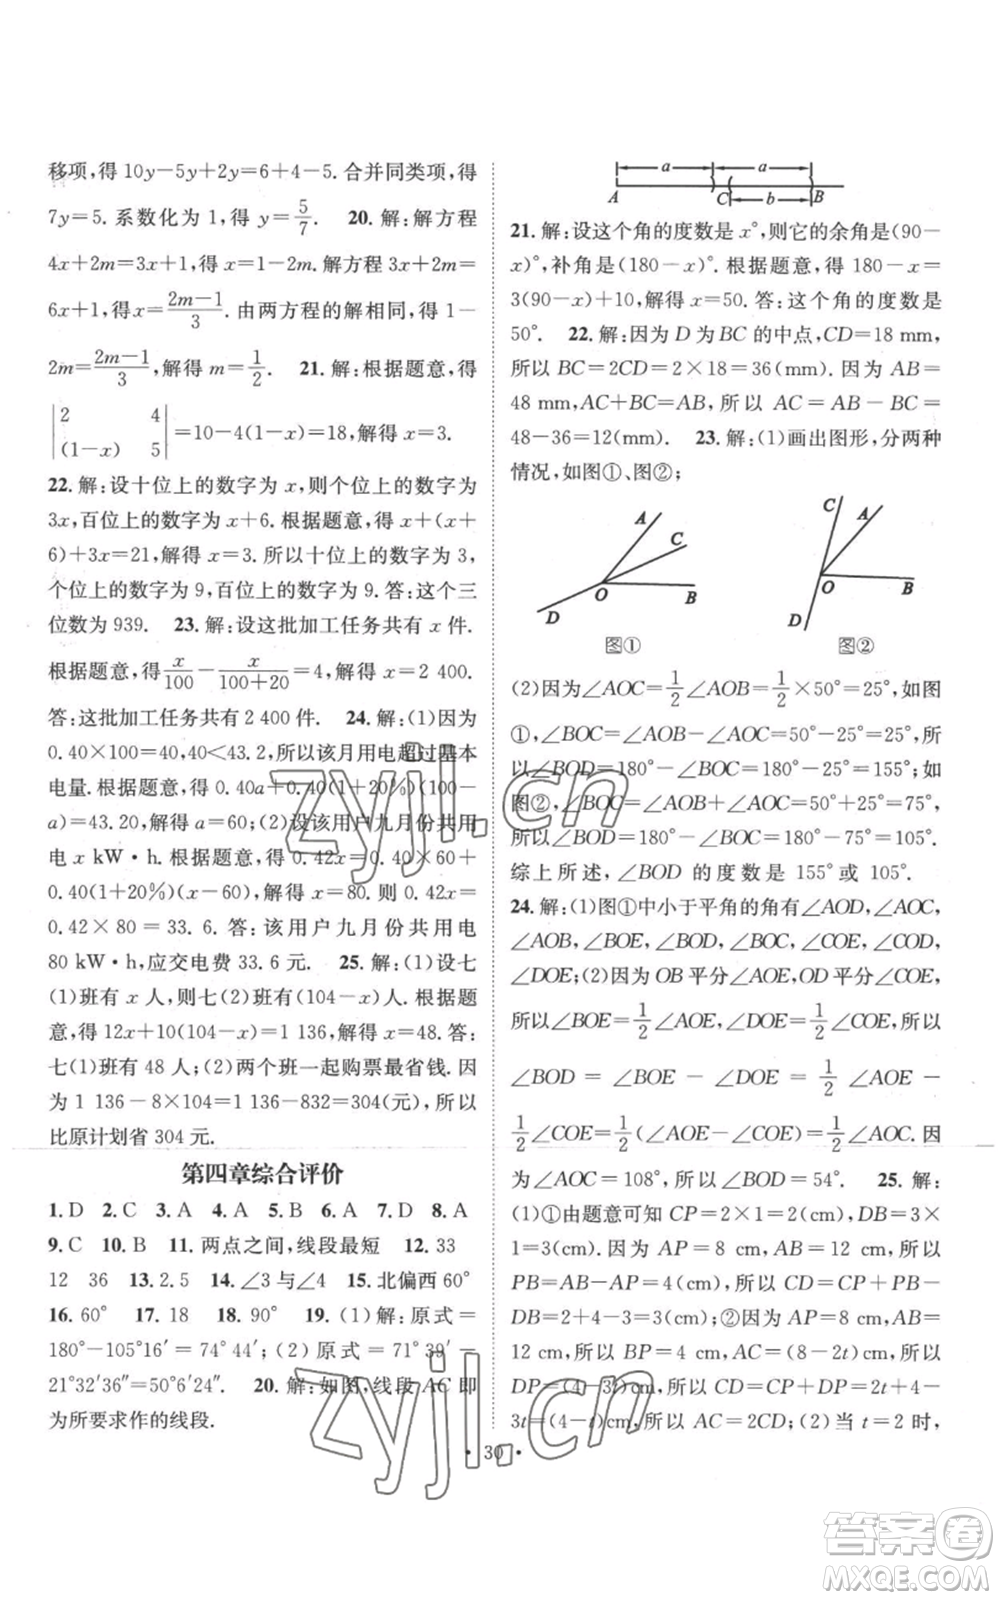 移项,得 10y-5y+2y=6+4-5. 合并同类项,得
7y=5. 系数化为 1,得 y=5/7. 20. 解:解方程
4x+2m=3x+1,得 x=1-2m. 解方程 3x+2m=
6x+1,得 x=(2m-1)/3. 由两方程的解相同,得 1-
2m=(2m-1)/3,解得 m=1/2. 21. 解:根据题意,得
|2 4|
|(1-x) 5|=10-4(1-x)=18,解得 x=3.
22. 解:设十位上的数字为 x,则个位上的数字为
3x,百位上的数字为 x+6. 根据题意,得 x+(x+
6)+3x=21,解得 x=3. 所以十位上的数字为 3,
个位上的数字为 9,百位上的数字为 9. 答:这个三
位数为 939. 23. 解:设这批加工任务共有 x 件.
根据题意,得 x/100-x/(100+20)=4,解得 x=2 400.
答:这批加工任务共有 2 400 件. 24. 解:(1)因为
0.40×100=40,40<43.2,所以该月用电超过基本
电量. 根据题意,得 0.40a+0.40(1+20%)(100-
a)=43.20,解得 a=60;(2)设该用户九月份共用
电 x kW·h. 根据题意,得 0.42x=0.40×60+
0.40(1+20%)(x-60),解得 x=80. 则 0.42x=
0.42×80=33.6. 答:该用户九月份共用电
80 kW·h,应交电费 33.6 元. 25. 解:(1)设七
(1)班有 x 人,则七(2)班有(104-x)人. 根据题
意,得 12x+10(104-x)=1 136,解得 x=48. 答:
七(1)班有 48 人;(2)两个班一起购票最省钱. 因
为 1 136-8×104=1 136-832=304(元),所以
比原计划省 304 元.
第四章综合评价
1. D 2. C 3. A 4. A 5. B 6. A 7. D 8. A
9. C 10. B 11. 两点之间,线段最短 12. 33
12 36 13. 2.5 14. ∠3 与∠4 15. 北偏西 60°
16. 60° 17. 18 18. 90° 19. (1)解:原式=
180°-105°16′=74°44′;(2)原式=71°39′-
21°32′36″=50°6′24″. 20. 解:如图,线段 AC 即
为所要求作的线段.
a a
A C b B
21. 解:设这个角的度数是 x°,则它的余角是(90-
x)°,补角是(180-x)°. 根据题意,得 180-x=
3(90-x)+10,解得 x=50. 答:这个角的度数是
50°. 22. 解:因为 D 为 BC 的中点,CD=18 mm,
所以 BC=2CD=2×18=36(mm). 因为 AB=
48 mm,AC+BC=AB,所以 AC=AB-BC=
48-36=12(mm). 23. 解:(1)画出图形,分两种
情况,如图①、图②;
A C O B D
图①
C A O B D
图②
(2)因为∠AOC=1/2∠AOB=1/2×50°=25°,如图
①,∠BOC=∠AOB-∠AOC=50°-25°=25°,所
以∠BOD=180°-∠BOC=180°-25°=155°;如
图②,∠BOC=∠AOB+∠AOC=50°+25°=75°,
所以∠BOD=180°-∠BOC=180°-75°=105°.
综上所述,∠BOD 的度数是 155°或 105°.
24. 解:(1)图①中小于平角的角有∠AOD,∠AOC,
∠AOB,∠BOE,∠BOD,∠BOC,∠COE,∠COD,
∠DOE;(2)因为 OB 平分∠AOE,OD 平分∠COE,
所以∠BOE=1/2∠AOE,∠DOE=1/2∠COE,所以
∠BOD=∠BOE-∠DOE=1/2∠AOE-
1/2∠COE=1/2(∠AOE-∠COE)=1/2∠AOC. 因
为∠AOC=108°,所以∠BOD=54°. 25. 解:
(1)①由题意可知 CP=2×1=2(cm),DB=3×
1=3(cm). 因为 AP=8 cm,AB=12 cm,所以
PB=AB-AP=4(cm),所以 CD=CP+PB-
DB=2+4-3=3(cm);②因为 AP=8 cm,AB=
12 cm,所以 BP=4 cm,AC=(8-2t)cm,所以
DP=(4-3t)cm,所以 CD=CP+DP=2t+4-
3t=(4-t)cm,所以 AC=2CD;(2)当 t=2 时,
·30·
zyjl.cn
zyjl.cn
答案圈
MXQE.COM